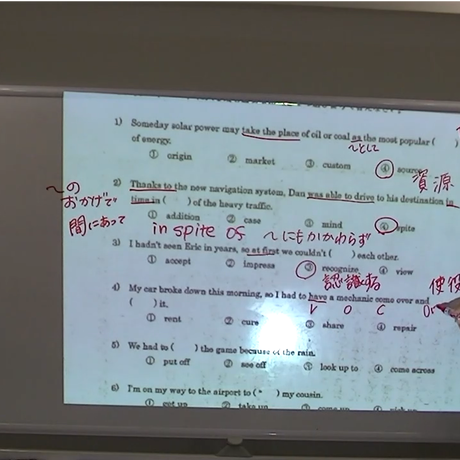 1) Someday solar power may take the place of oil or coal as the most popular ( )
～として
of energy.
① origin ② market ③ custom ④ source
資源
2) Thanks to the new navigation system, Dan was able to drive to his destination
～の
おかげで
time in ( ) of the heavy traffic.
間にあって
① addition ② case ③ mind ④ spite
in spite of ～にもかかわらず
3) I hadn't seen Eric in years, so at first we couldn't ( ) each other.
① accept ② impress ③ recognize ④ view
認識する
使役
4) My car broke down this morning, so I had to have a mechanic come over and
V O C
( ) it.
① rent ② cure ③ share ④ repair
5) We had to ( ) the game because of the rain.
① put off ② see off ③ look up to ④ come across
6) I'm on my way to the airport to ( ) my cousin.
① get up ② take up ③ come up ④ pick up